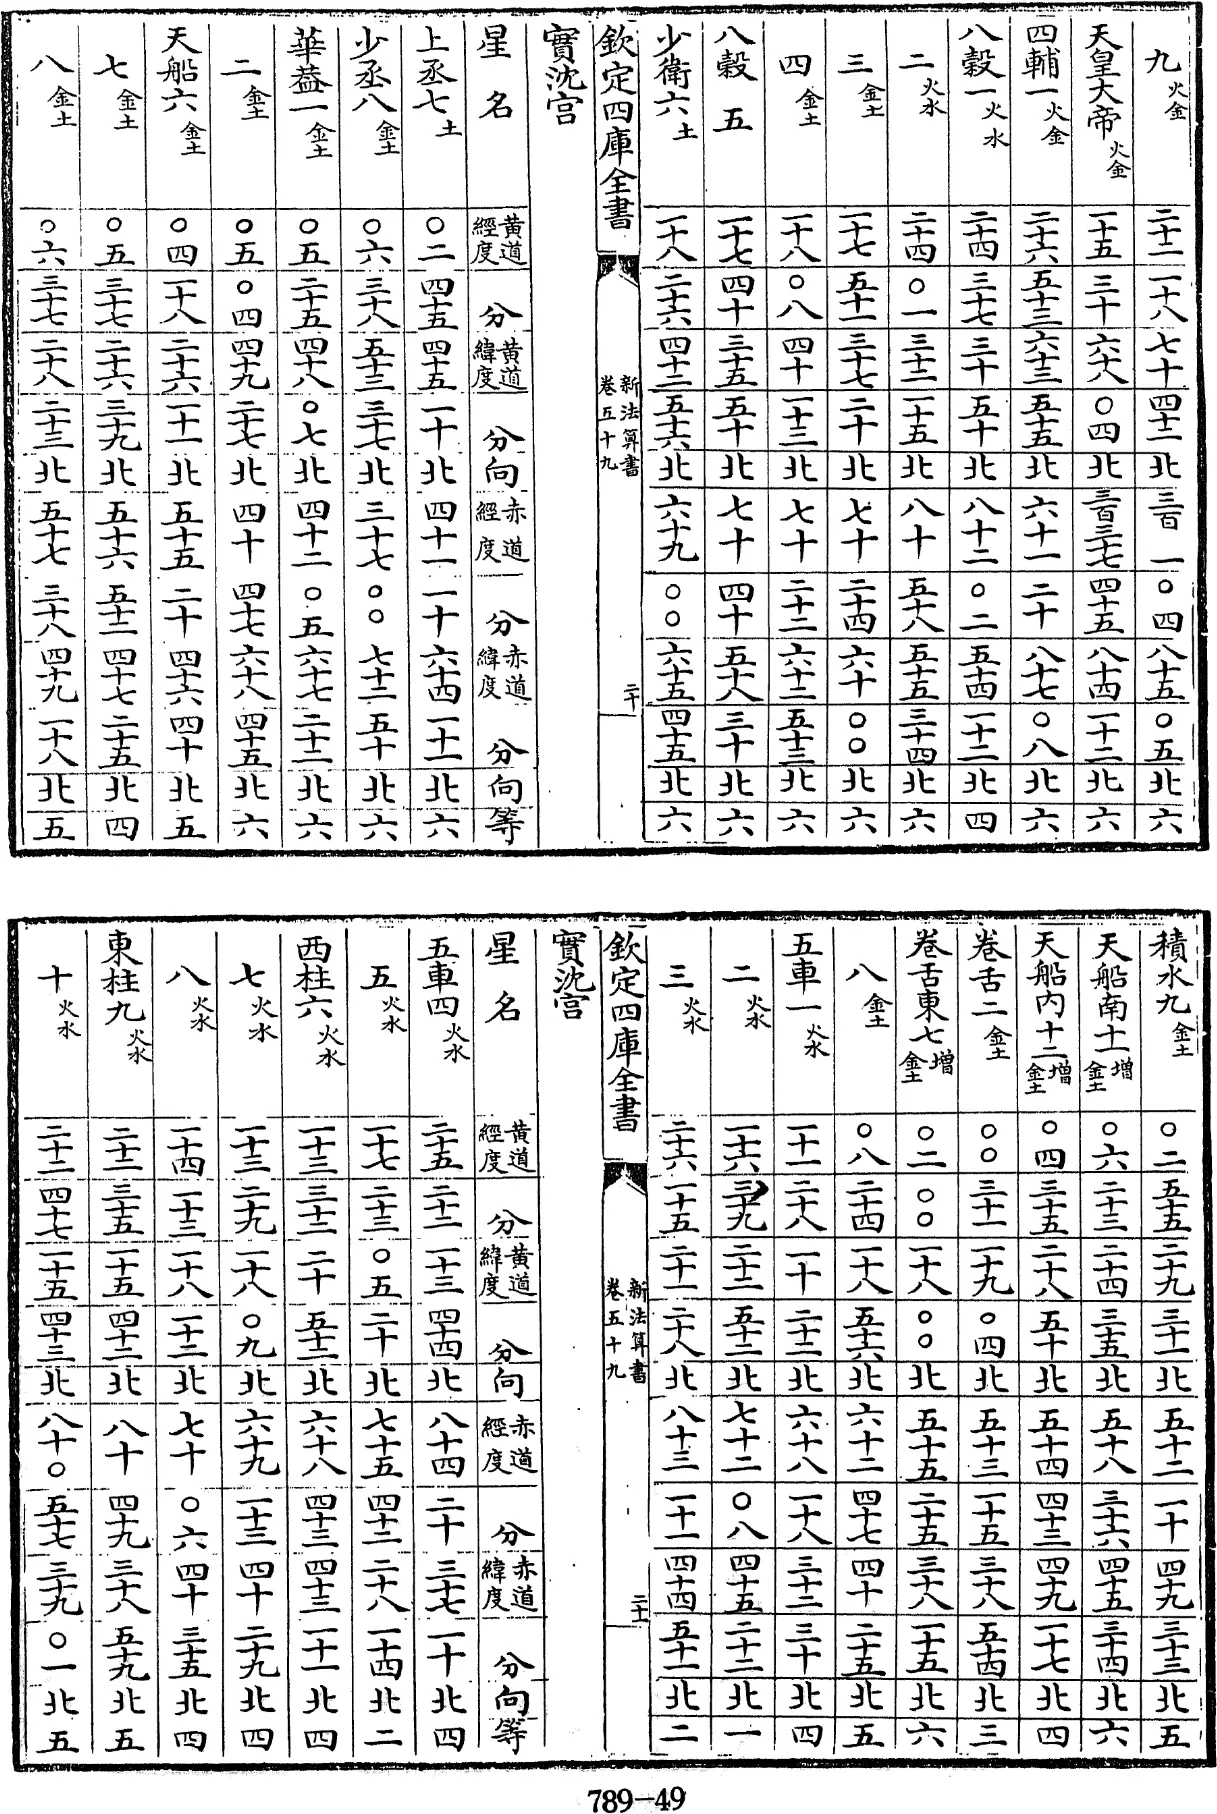 九 火金 二十二 一十八 七十 四十二 北 三百一 〇四 八十五 〇五 北 六
天皇大帝 火金 一十五 三十 六十八 〇四 北 三百三十七 四十五 八十四 一十二 北 六
四輔一 火金 二十六 五十三 六十三 五十五 北 六十一 二十 八十七 〇八 北 六
八穀一 火水 二十四 三十七 三十 五十 北 八十二 〇二 五十四 一十二 北 四
二 火水 二十四 〇一 三十二 一十五 北 八十 五十八 五十五 三十四 北 六
三 金土 一十七 五十二 三十七 二十 北 七十 二十四 六十 〇〇 北 六
四 金土 一十八 〇八 四十 一十三 北 七十 二十二 六十二 五十三 北 六
八穀五 一十七 四十 三十五 五十 北 七十 四十 五十八 三十 北 六
少衛六 土 一十八 二十六 四十二 五十六 北 六十九 〇〇 六十五 四十五 北 六
欽定四庫全書 新法算書 卷五十九 二十
實沈宮
星名 黃道經度 分 黃道緯度 分 向 赤道經度 分 赤道緯度 分 向 等
上丞七 土 〇二 四十五 四十五 一十 北 四十一 一十 六十四 一十一 北 六
少丞八 金土 〇六 三十八 五十三 三十七 北 三十七 〇〇 七十二 五十 北 六
華蓋一 金土 〇五 二十五 四十八 〇七 北 四十二 〇五 六十七 二十二 北 六
二 金土 〇五 〇四 四十九 二十七 北 四十 四十七 六十八 四十五 北 六
天船六 金土 〇四 一十八 二十六 一十一 北 五十五 二十 四十六 四十 北 五
七 金土 〇五 三十七 二十六 三十九 北 五十六 五十二 四十七 二十五 北 四
八 金土 〇六 三十七 二十八 二十三 北 五十七 三十八 四十九 一十八 北 五
積水九 金土 〇二 五十五 二十九 三十一 北 五十二 一十 四十九 三十三 北 五
天船南十一 增 金土 〇六 二十三 二十四 三十五 北 五十八 三十六 四十五 三十四 北 六
天船內十二 增 金土 〇四 三十五 二十八 五十 北 五十四 四十三 四十九 一十七 北 四
卷舌二 金土 〇〇 三十一 一十九 〇四 北 五十三 一十五 三十八 五十四 北 三
卷舌東七 增 金土 〇二 〇〇 一十八 〇〇 北 五十五 二十五 三十八 一十五 北 六
八 金土 〇八 二十四 一十八 五十六 北 六十二 四十七 四十 二十五 北 五
五車一 火水 一十一 二十八 一十 二十二 北 六十八 一十八 三十二 三十 北 四
二 火水 一十六 三十九 二十二 五十二 北 七十二 〇八 四十五 二十二 北 一
三 火水 二十六 一十五 二十一 二十八 北 八十三 一十一 四十四 五十一 北 二
欽定四庫全書 新法算書 卷五十九 二十一
實沈宮
星名 黃道經度 分 黃道緯度 分 向 赤道經度 分 赤道緯度 分 向 等
五車四 火水 二十五 二十二 一十三 四十四 北 八十四 二十 三十七 一十 北 四
五 火水 一十七 二十三 〇五 二十 北 七十五 四十二 二十八 一十四 北 二
西柱六 火水 一十三 三十二 二十 五十二 北 六十八 四十三 四十三 一十一 北 四
七 火水 一十三 二十九 一十八 〇九 北 六十九 一十三 四十 二十九 北 四
八 火水 一十四 一十三 一十八 一十二 北 七十 〇六 四十 三十五 北 四
東柱九 火水 二十二 三十五 一十五 四十二 北 八十 四十九 三十八 五十九 北 五
十 火水 二十二 四十七 一十五 四十三 北 八十〇 五十七 三十九 〇一 北 五
789-49